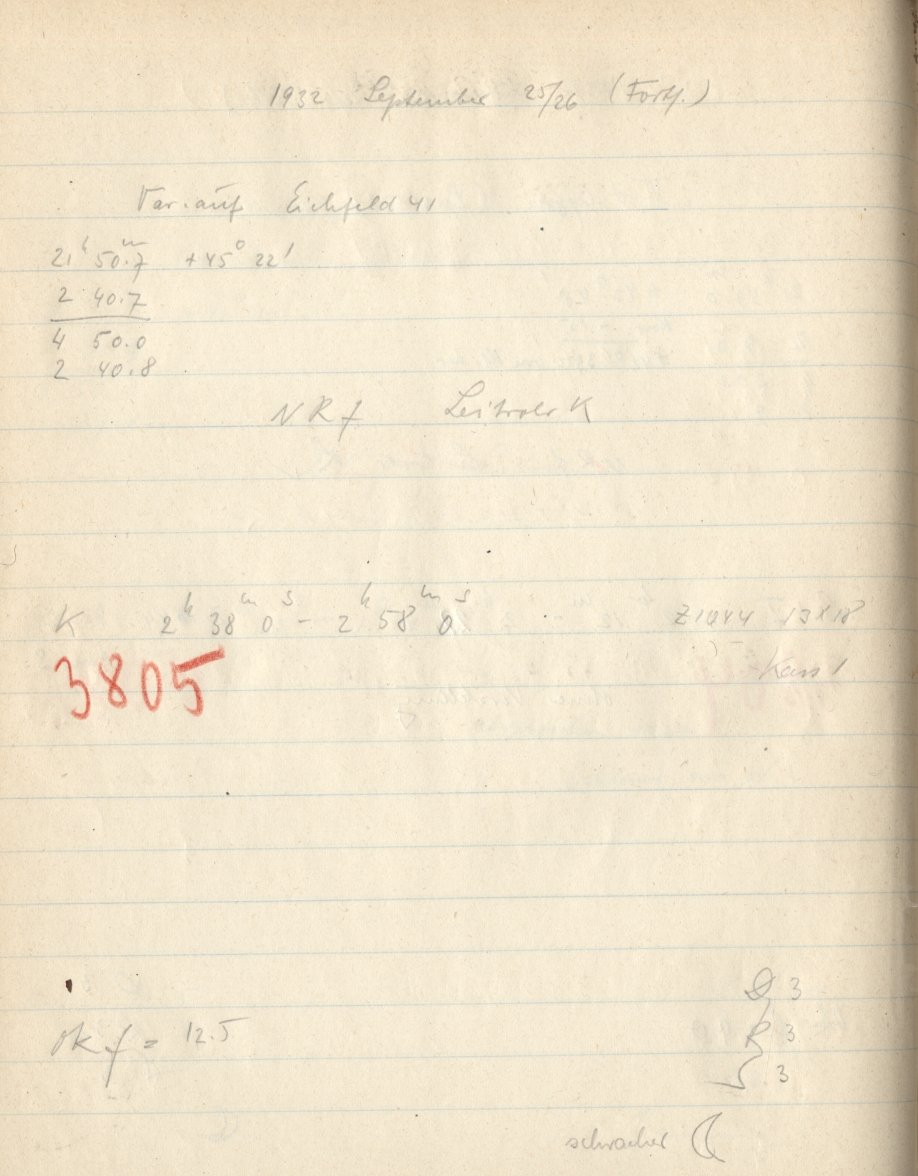 1932 September 25/26 (Forts.)
Var. auf Eichfeld 41
21ʰ 50.ᵐ7 +45° 22'
2 40.7
4 50.0
2 40.8
NRf Leitrohr K
K 2ʰ 38ᵐ 0ˢ - 2ʰ 58ᵐ 0ˢ Z1044 13X18
3805 Kass 1
D 3
ok f = 12.5 R 3
S 3
schwacher ☾